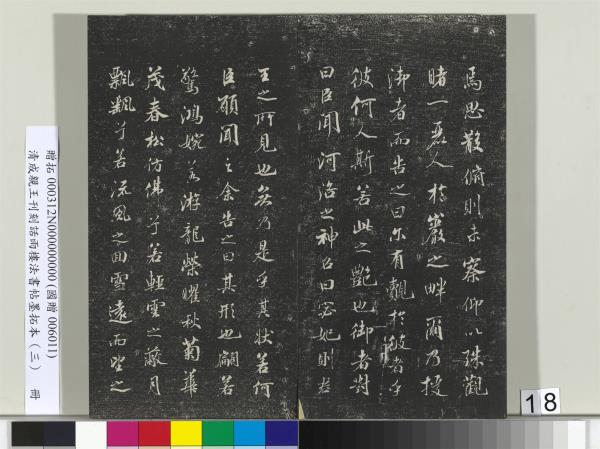 焉思散俯則未察仰以殊觀
睹一麗人於巖之畔爾乃援
御者而告之曰尔有覿於彼者乎
彼何人斯若此之艷也御者對
曰臣聞河洛之神名曰宓妃則君
王之所見也無乃是乎其狀若何
臣願聞之余告之曰其形也翩若
驚鴻婉若游龍榮曜秋菊華
茂春松仿佛兮若輕雲之蔽月
飄颻兮若流風之回雪遠而望之
贈拓 000312N000000000 (國贈 006011)
清成親王刊刻話雨樓法書帖墨拓本（三） 冊
18